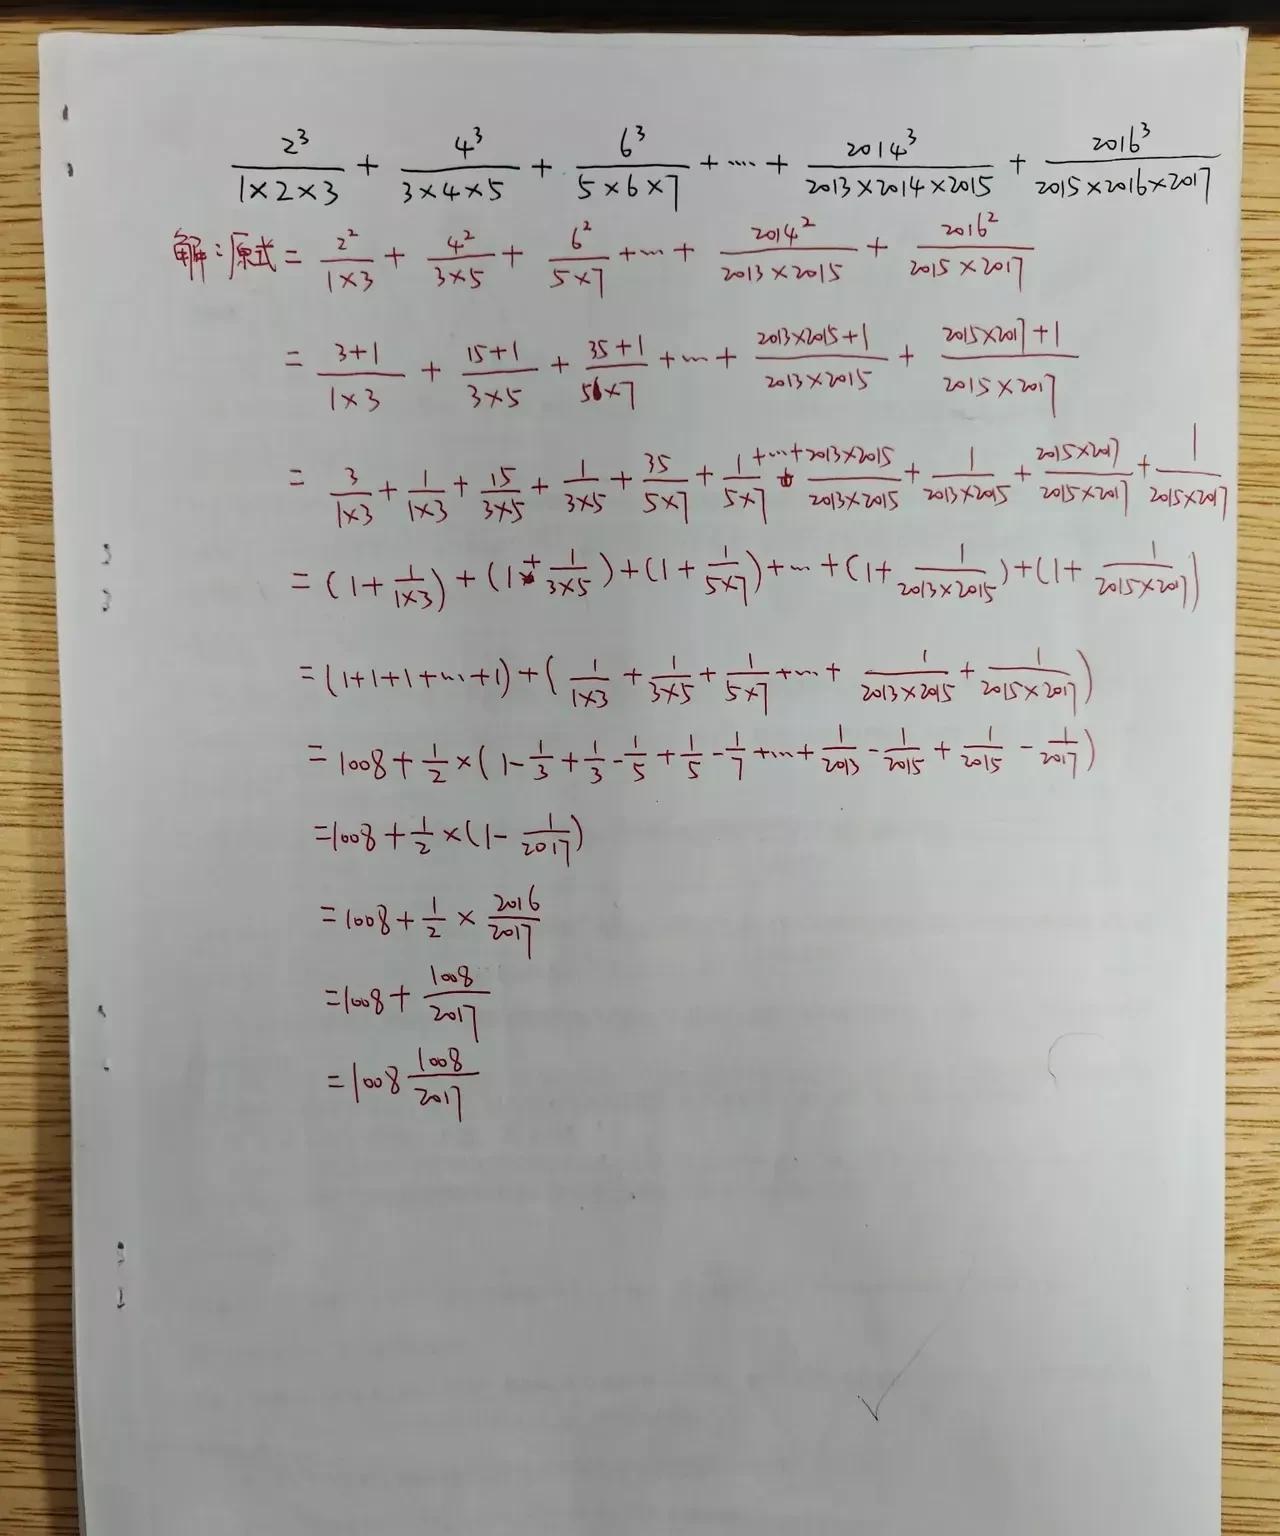 2³/(1×2×3) + 4³/(3×4×5) + 6³/(5×6×7) + ···· + 2014³/(2013×2014×2015) + 2016³/(2015×2016×2017)
解:原式 = 2²/(1×3) + 4²/(3×5) + 6²/(5×7) + ··· + 2014²/(2013×2015) + 2016²/(2015×2017)
= (3+1)/(1×3) + (15+1)/(3×5) + (35+1)/(5×7) + ··· + (2013×2015+1)/(2013×2015) + (2015×2017+1)/(2015×2017)
= 3/(1×3) + 1/(1×3) + 15/(3×5) + 1/(3×5) + 35/(5×7) + 1/(5×7) + ··· + (2013×2015)/(2013×2015) + 1/(2013×2015) + (2015×2017)/(2015×2017) + 1/(2015×2017)
= (1 + 1/(1×3)) + (1 + 1/(3×5)) + (1 + 1/(5×7)) + ··· + (1 + 1/(2013×2015)) + (1 + 1/(2015×2017))
= (1+1+1+···+1) + (1/(1×3) + 1/(3×5) + 1/(5×7) + ··· + 1/(2013×2015) + 1/(2015×2017))
= 1008 + 1/2 × (1 - 1/3 + 1/3 - 1/5 + 1/5 - 1/7 + ··· + 1/2013 - 1/2015 + 1/2015 - 1/2017)
= 1008 + 1/2 × (1 - 1/2017)
= 1008 + 1/2 × 2016/2017
= 1008 + 1008/2017
= 1008 1008/2017